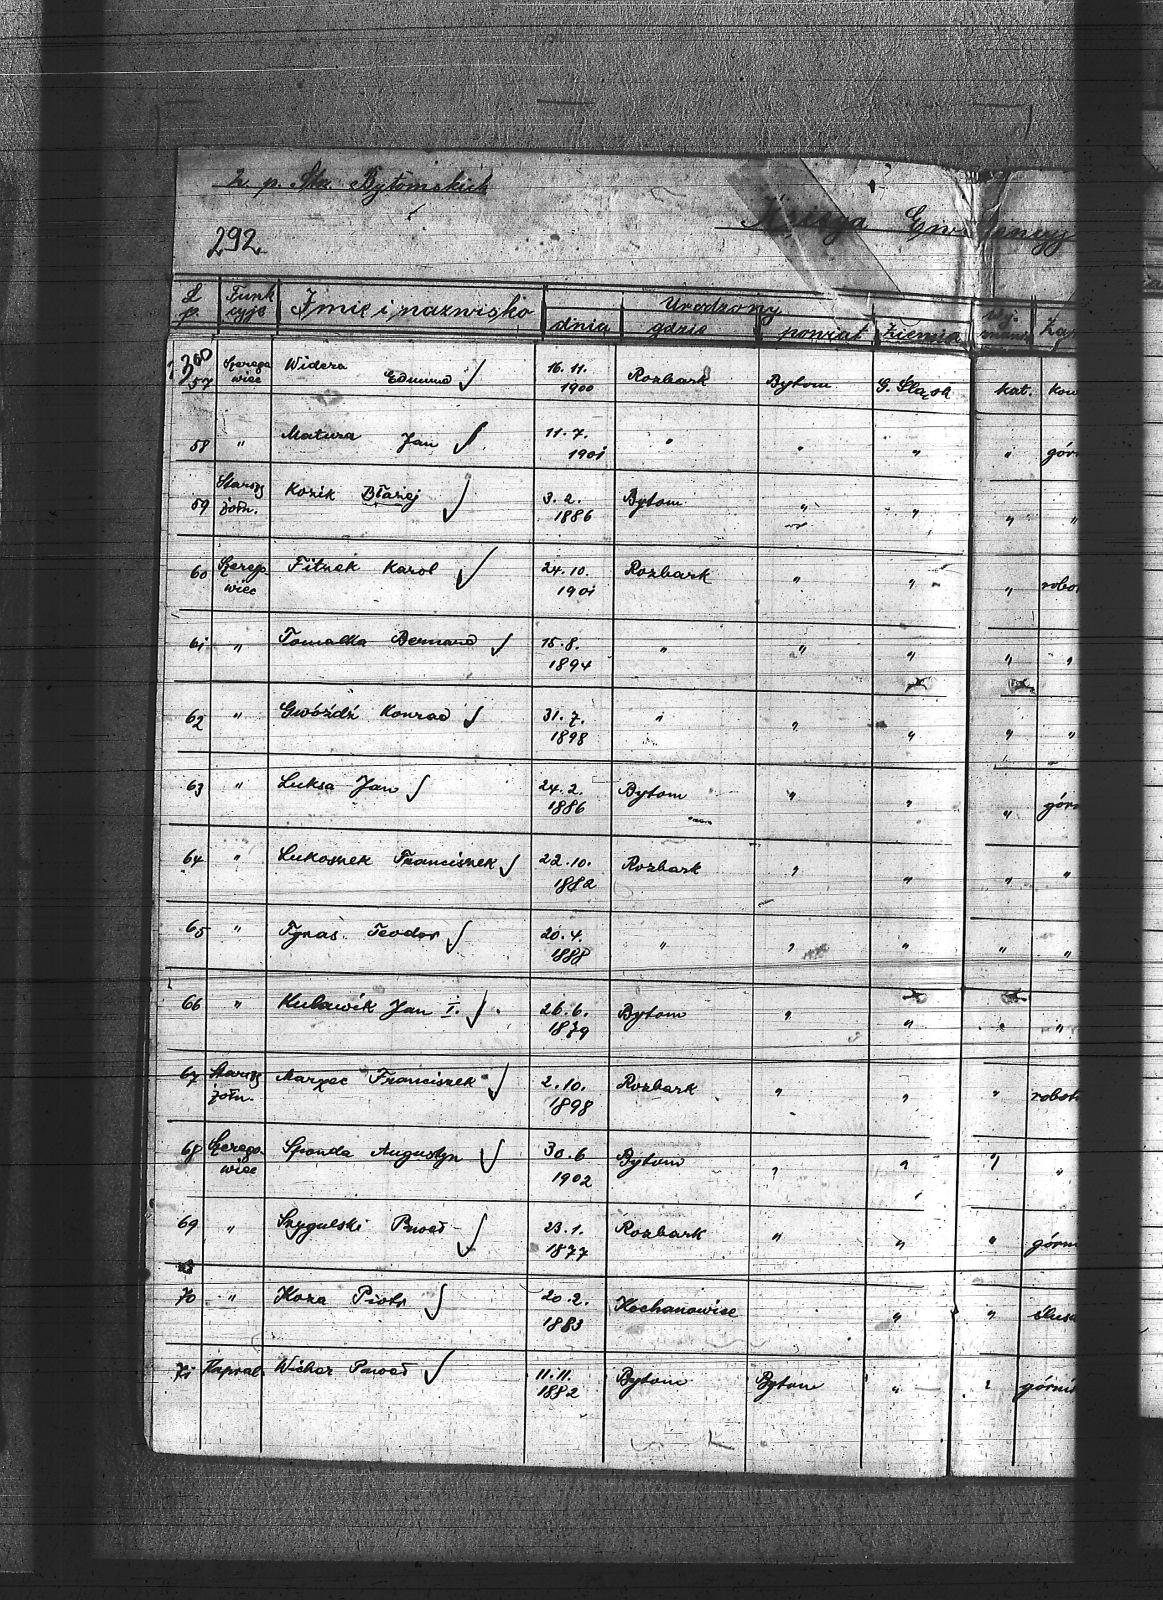 2. p. Strz. Bytomskich
292.
Księga Ewidencyj
L. p. Funkcyje Imię i nazwisko Urodzony
dnia gdzie powiat Ziemia Wyznanie Za
300
57 Szeregowiec Widera Edmund 16.11. 1900 Rozbark Bytom G. Śląsk kat. kow
58 " Matura Jan 11.7. 1901 " " " " gór
59 Starszy żołn. Kozik Błażej 3.2. 1886 Bytom " " " "
60 Szeregowiec Fitzek Karol 24.10. 1901 Rozbark " " " robo
61 " Tomalla Bernard 15.8. 1894 " " " " "
62 " Gwóźdź Konrad 31.7. 1898 " " " " "
63 " Luksa Jan 24.2. 1886 Bytom " " " gór
64 " Lukoszek Franciszek 22.10. 1882 Rozbark " " " "
65 " Tyraś Teodor 20.4. 1888 " " " " "
66 " Kulawik Jan I. 26.6. 1879 Bytom " " " "
67 Starszy żołn. Marzec Franciszek 2.10. 1898 Rozbark " " " robot
68 Szeregowiec Sponda Augustyn 30.6 1902 Bytom " " " "
69 " Szygulski Paweł 23.1. 1877 Rozbark " " " górni
70 " Koza Piotr 20.2. 1883 Kochanowice " " ślusa
71 Kapral Wichar Paweł 11.11. 1882 Bytom Bytom " " górni